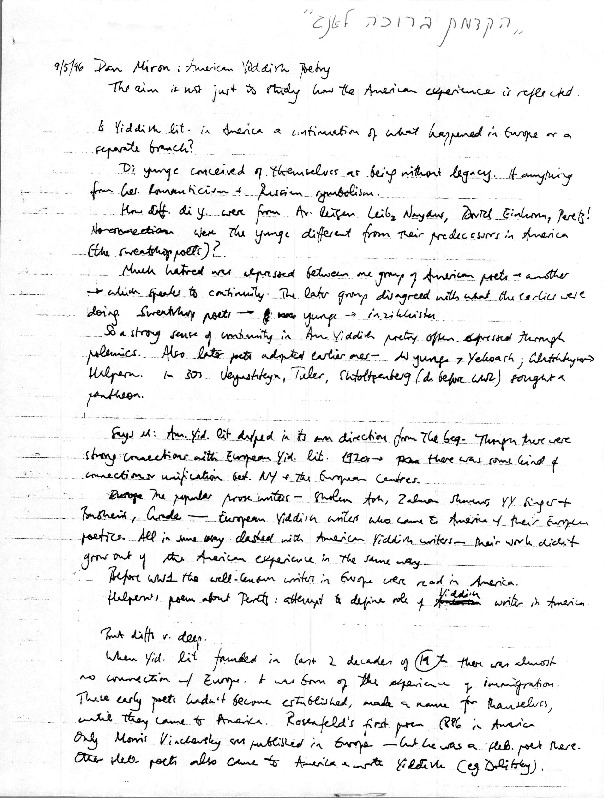 "הקדמת ברוכה לאנג"
9/5/96 Dan Miron: American Yiddish Poetry
The aim is not just to study how the American experience is reflected.
Is Yiddish lit. in America a continuation of what happened in Europe or a
separate branch?
Di yunge conceived of themselves as being without legacy. If anything
from Ger. Romanticism + Russian symbolism.
How diff. di y. were from Av. Leyb Naydus, David Einhorn, Perets!
were the yunge different from their predecessors in America
(the sweatshop poets)?
Much hatred was expressed between one group of American poets → another
→ which speaks to continuity. The later group disagreed with what the earlier were
doing Sweatshop poets → yunge → inzikhistn
So a strong sense of continuity in Am Yiddish poetry often expressed through
polemics. Also later poets adopted earlier ones – di yunge → Yehoash; →
Halpern. In 30s Vaynshteyn, Tsiler, Shtoltsenberg (d. before WW2) sought a
pantheon.
Says M: Am. Yid. lit devped in its own direction from the beg. Though there were
strong connections with European Yid. lit. 1920s → there was some kind of
connection or unification bet. NY + the European centres.
The popular prose writers – Sholem Ash, Zalman Shneur, YY Singer +
Bashevis, Grade — European Yiddish writers who came to America w/ their European
poetics. All in some way clashed with American Yiddish writers – their work didn't
grow out of the American experience in the same way.
Before WW1 the well-known writers in Europe were read in America.
Halpern's poem about Perets: attempt to define role of Yiddish writer in America
But diffs v. deep.
When Yid. lit founded in last 2 decades of 19th there was almost
no connection w/ Europe. It was born of the experience of immigration.
These early poets hadn't become established, made a name for themselves,
until they came to America. Rosenfeld's first poem 1886 in America
Only Morris Vinchevsky was published in Europe – but he was a Heb. poet there.
Other Heb poets also came to America + wrote Yiddish (eg Dolitsky).